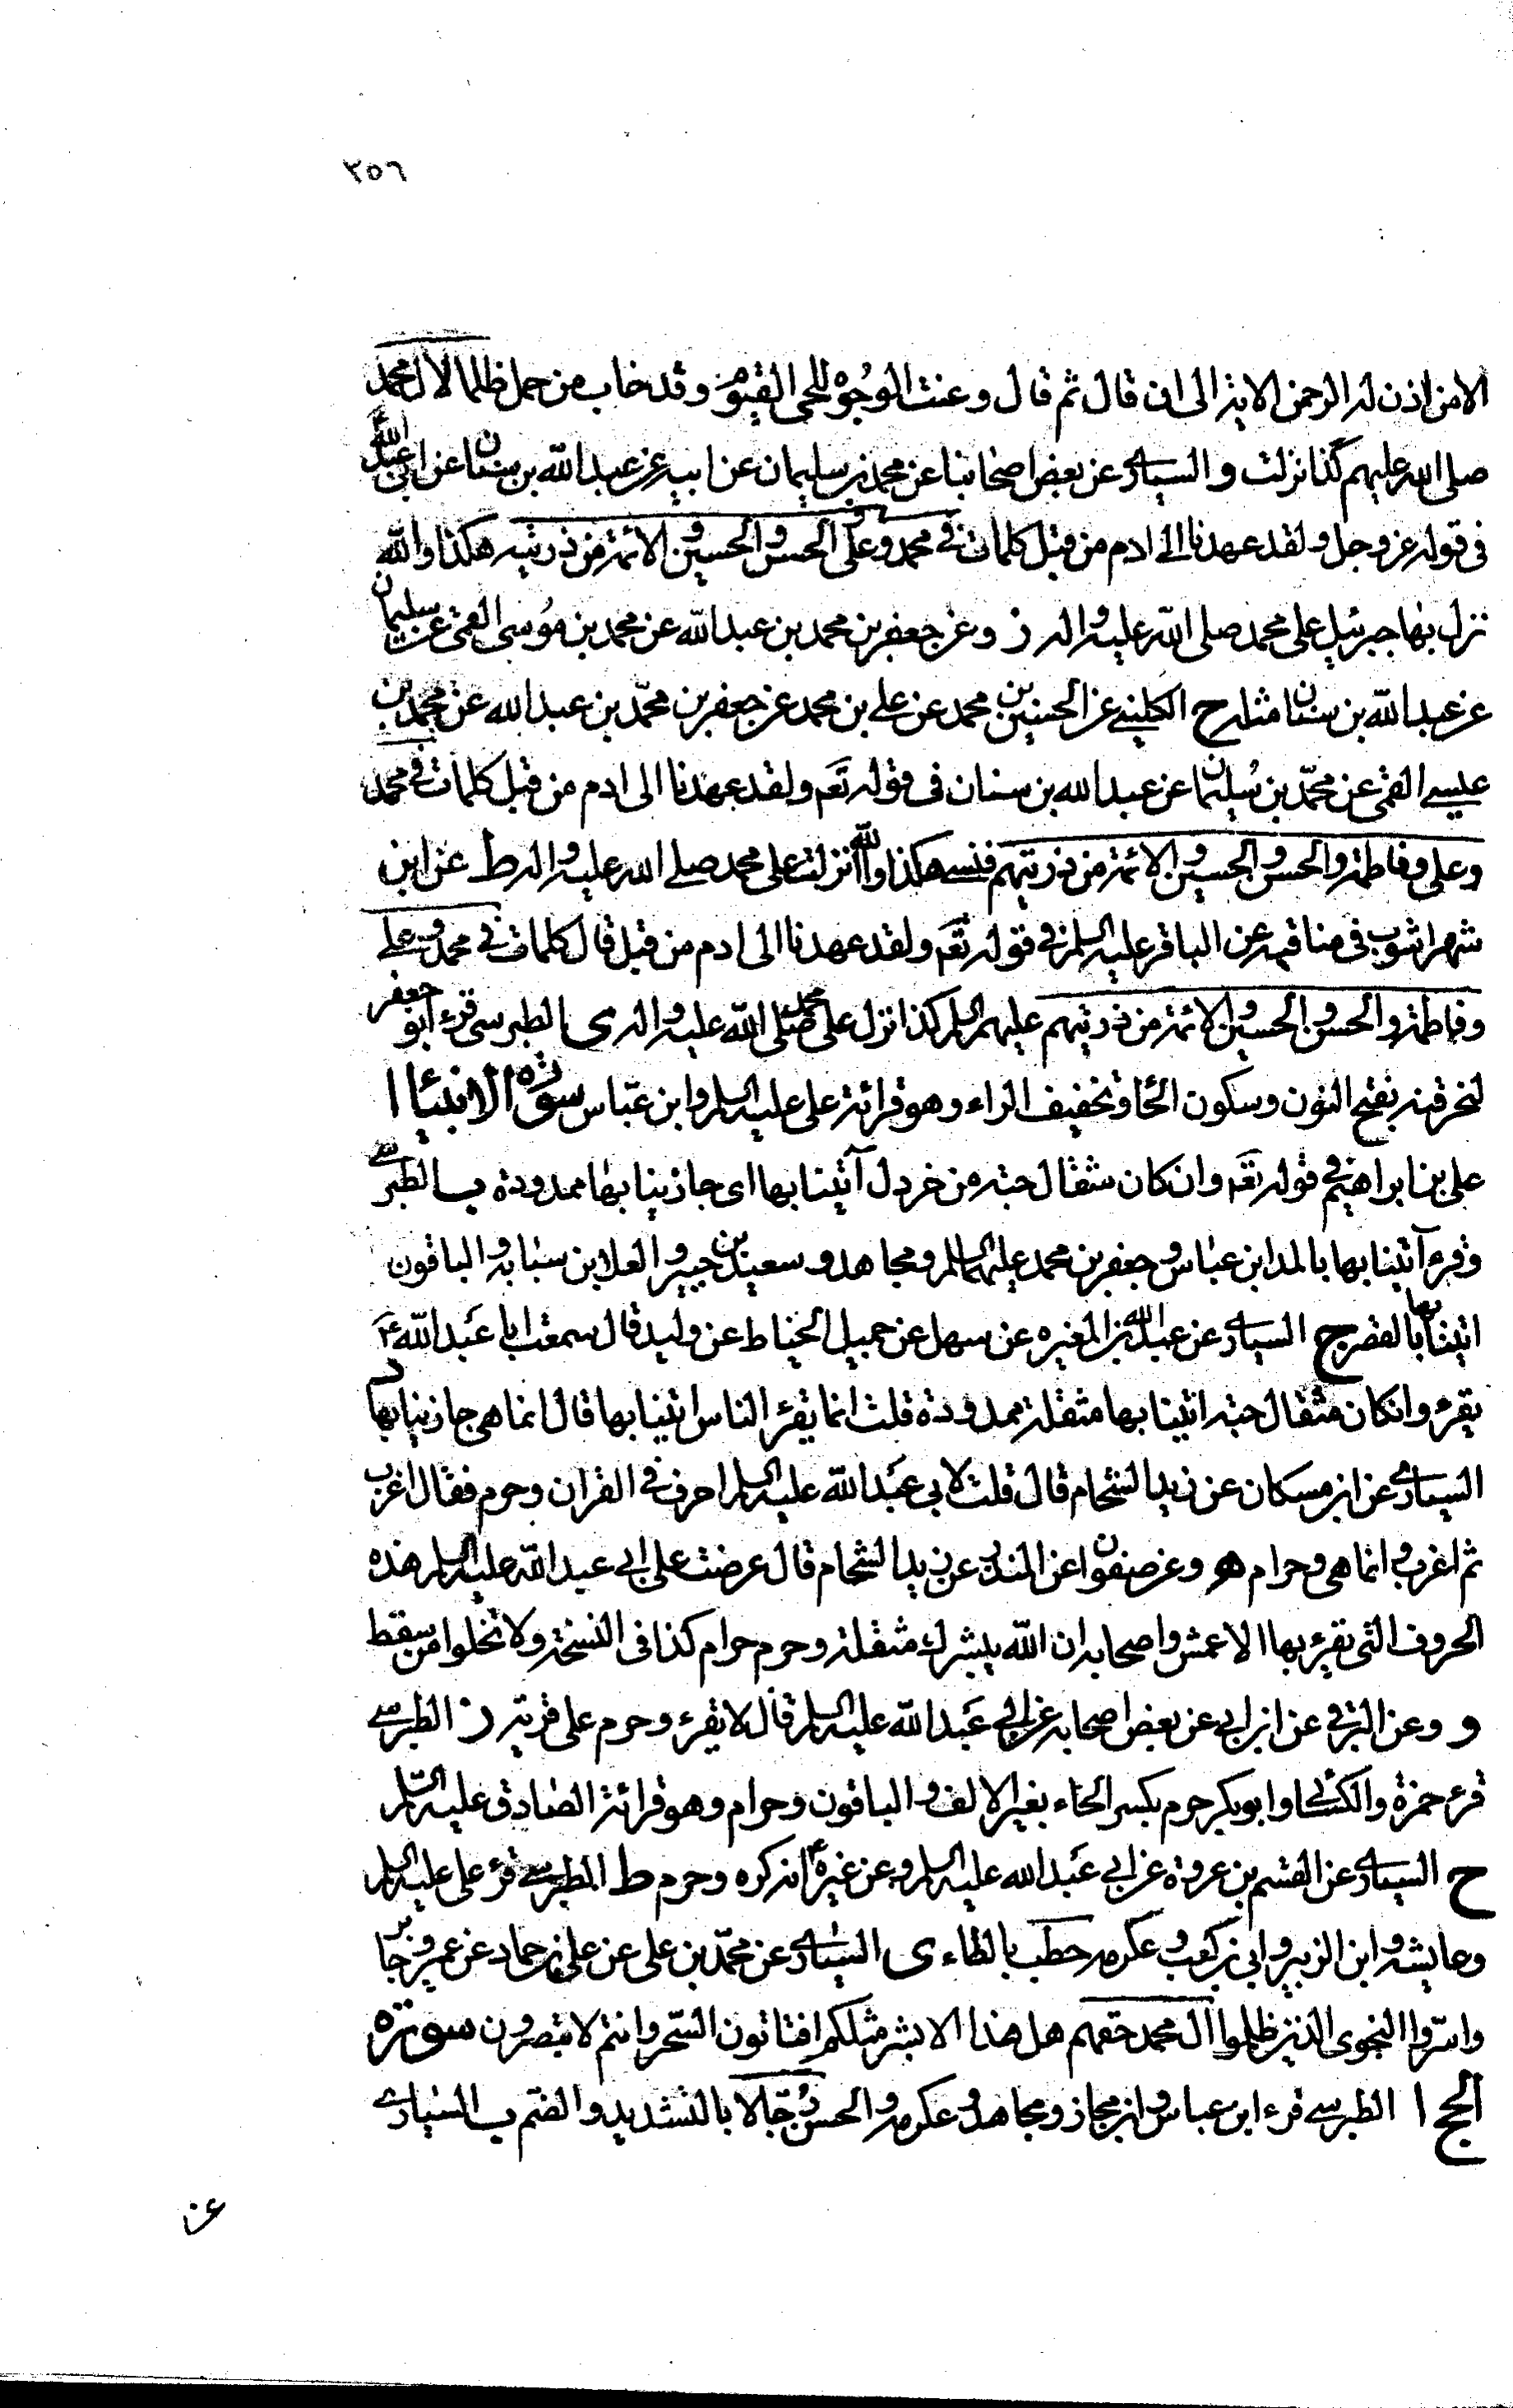 ٢٥٦
الا من اذن له الرحمن الاية الى ان قال ثم قال وعنت الوجوه للحى القيوم وقد خاب من حمل ظلما لال محمد
صلى الله عليهم كذا نزلت و السيارى عن بعض اصحابنا عن محمد بن سليمان عن ابيه عن عبد الله بن سنان عن ابى عبد الله ع
فى قوله عز وجل ولقد عهدنا الى ادم من قبل كلمات فى محمد وعلى والحسن والحسين والائمة من ذريته هكذا والله
نزل بها جبرئيل على محمد صلى الله عليه واله ز وعن جعفر بن محمد بن عبد الله عن محمد بن موسى القمى عن سليمان
عن عبد الله بن سنان مثله ح الكلينى عن الحسين بن محمد عن على بن محمد عن جعفر بن محمد بن عبد الله عن محمد بن
عيسى القمى عن محمد بن سليمان عن عبد الله بن سنان فى قوله تعم ولقد عهدنا الى ادم من قبل كلمات فى محمد
وعلى وفاطمة والحسن والحسين والائمة من ذريتهم فنسى هكذا والله انزلت على محمد صلى الله عليه واله ط عن ابن
شهراشوب فى مناقبه عن الباقر عليه السلم فى قوله تعم ولقد عهدنا الى ادم من قبل قال كلمات فى محمد وعلى
وفاطمة والحسن والحسين والائمة من ذريتهم عليهم السلم كذا نزل على محمد صلى الله عليه واله ى الطبرسى قرء ابو جعفر
لنحرقنه بفتح النون وسكون الحا وتخفيف الراء وهو قرائة على عليه السلم وابن عباس سورة الانبيا ا
على بن ابراهيم فى قوله تعم وان كان مثقال حبة من خردل آتينا بها اى جازينا بها ممدودة ب الطبرسى
وقرء آتينا بها بالمد ابن عباس وجعفر بن محمد عليهما السلم ومجاهد وسعيد بن جبير والعلا بن سيابة والباقون
اتينا بها بالقصر ج السيارى عن عبد الله بن المغيره عن سهل عن جميل الخياط عن وليد قال سمعت ابا عبد الله ع
يقرء وانكان مثقال حبة اتينا بها مثقلة ممدودة قلت انما يقرء الناس اتينا بها قال انما هى جازينا بها د
السيارى عن ابن مسكان عن زيد الشحام قال قلت لابى عبد الله عليه السلم احرف فى القران وحرم فقال اغرب
ثم اغرب انما هى وحرام ه وعن صفوان عن المنذر عن زيد الشحام قال عرضت على ابى عبد الله عليه السلم هذه
الحروف التى يقرء بها الاعمش واصحابه ان الله يبشرك مثقلة وحرم حرام كذا فى النسخة ولا تخلوا من سقط
و وعن البرقى عن ابن ابى عن بعض اصحابه عن ابى عبد الله عليه السلم قال لا يقرء وحرم على قرية ز الطبرسى
قرء حمزة والكسائى وابو بكر حرم بكسر الحاء بغير الالف والباقون وحرام وهو قرائة الصادق عليه السلم
ح السيارى عن القسم بن عروة عن ابى عبد الله عليه السلم وعن غيره انه كره وحرم ط الطبرسى قرء على عليه السلم
وعايشه وابن الزبير وابى بن كعب وعكرمه حطب بالطاء ى السيارى عن محمد بن على عن على بن حماد عن عمرو بن جا
واسروا النجوى الذين ظلموا ال محمد حقهم هل هذا الا بشر مثلكم افتاتون السحر وانتم لا تبصرون سورة
الحج ا الطبرسى قرء ابن عباس وابن مجاز ومجاهد وعكرمه والحسن رجالا بالتشديد والضم ب السيارى
عن